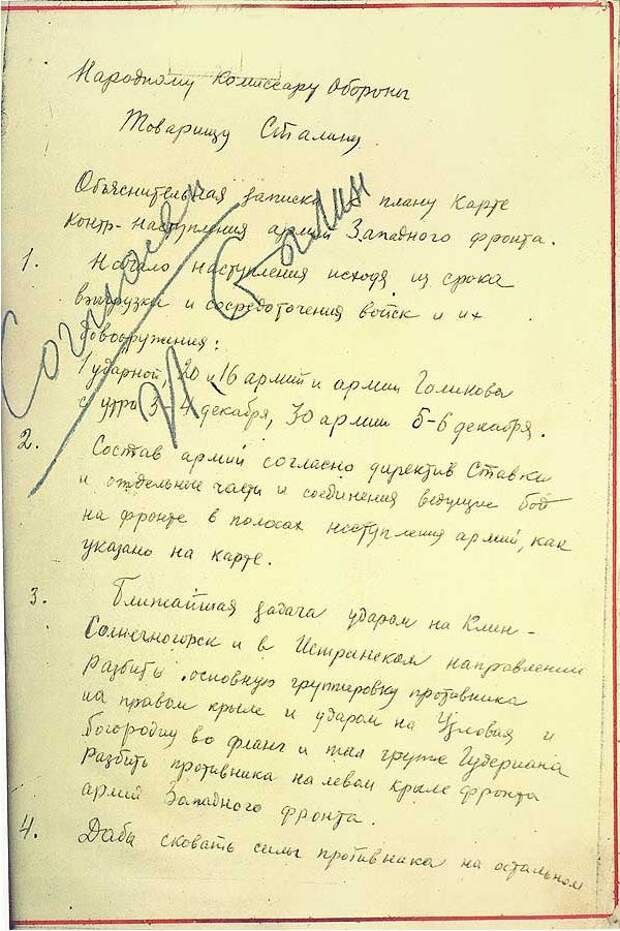 Народному Комиссару Обороны
Товарищу Сталину
Объяснительная записка плану карте
контр-наступления армий Западного фронта.
1. Начало наступления исходя из срока
выгрузки и сосредоточения войск и их
довооружения:
1 ударной, 20 и 16 армий и армии Голикова
с утра 3-4 декабря, 30 армии 5-6 декабря.
2. Состав армий согласно директив Ставки
и отдельные части и соединения ведущие бой
на фронте в полосах наступления армий, как
указано на карте.
3. Ближайшая задача ударом на Клин-
Солнечногорск и в Истринском направлении
разбить основную группировку противника
на правом крыле и ударом на Узловая и
Богородицк во фланг и тыл группе Гудериана
разбить противника на левом крыле фронта
армий Западного фронта.
4. Дабы сковать силы противника на остальном
Согласен
И Сталин